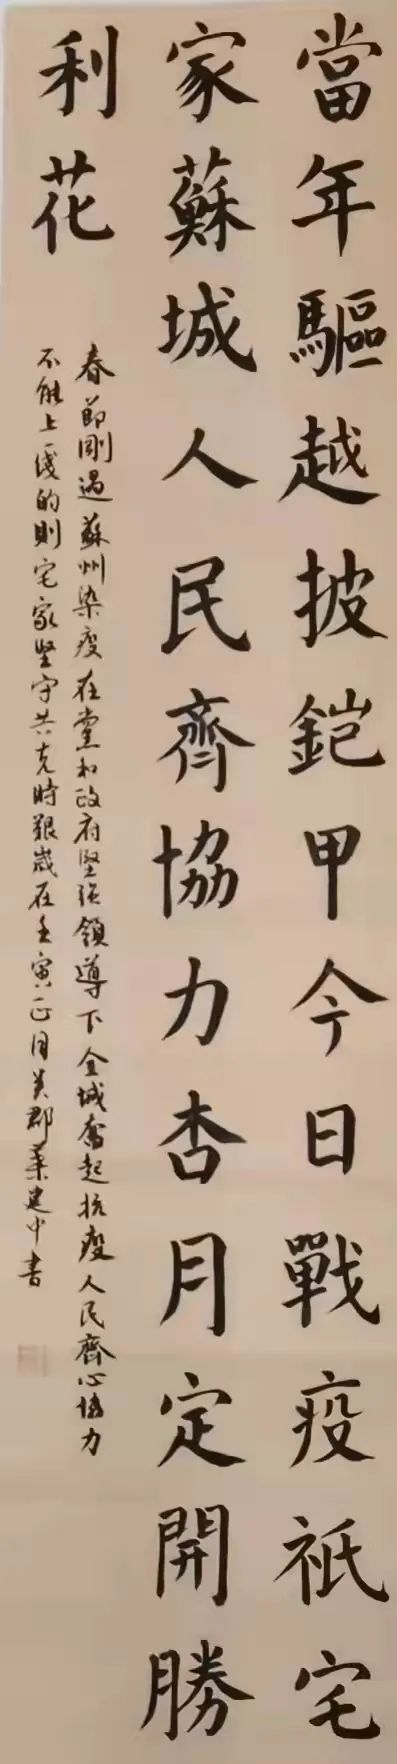 當年驅越披鎧甲今日戰疫祇宅
家蘇城人民齊協力杏月定開勝
利花
春節剛過蘇州染疫在黨和政府堅强領導下全城奮起抗疫人民齊心協力
不能上一线的則宅家坚守共克時艱歲在壬寅正月吴郡葉建中書